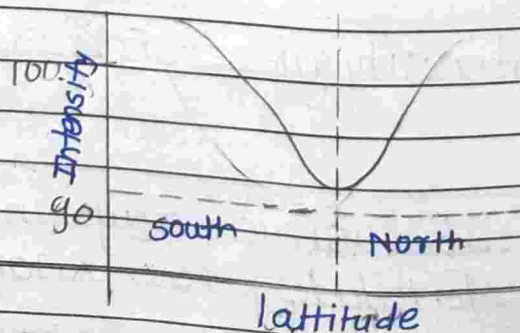 100.
Intensity
90
South
North
lattitude